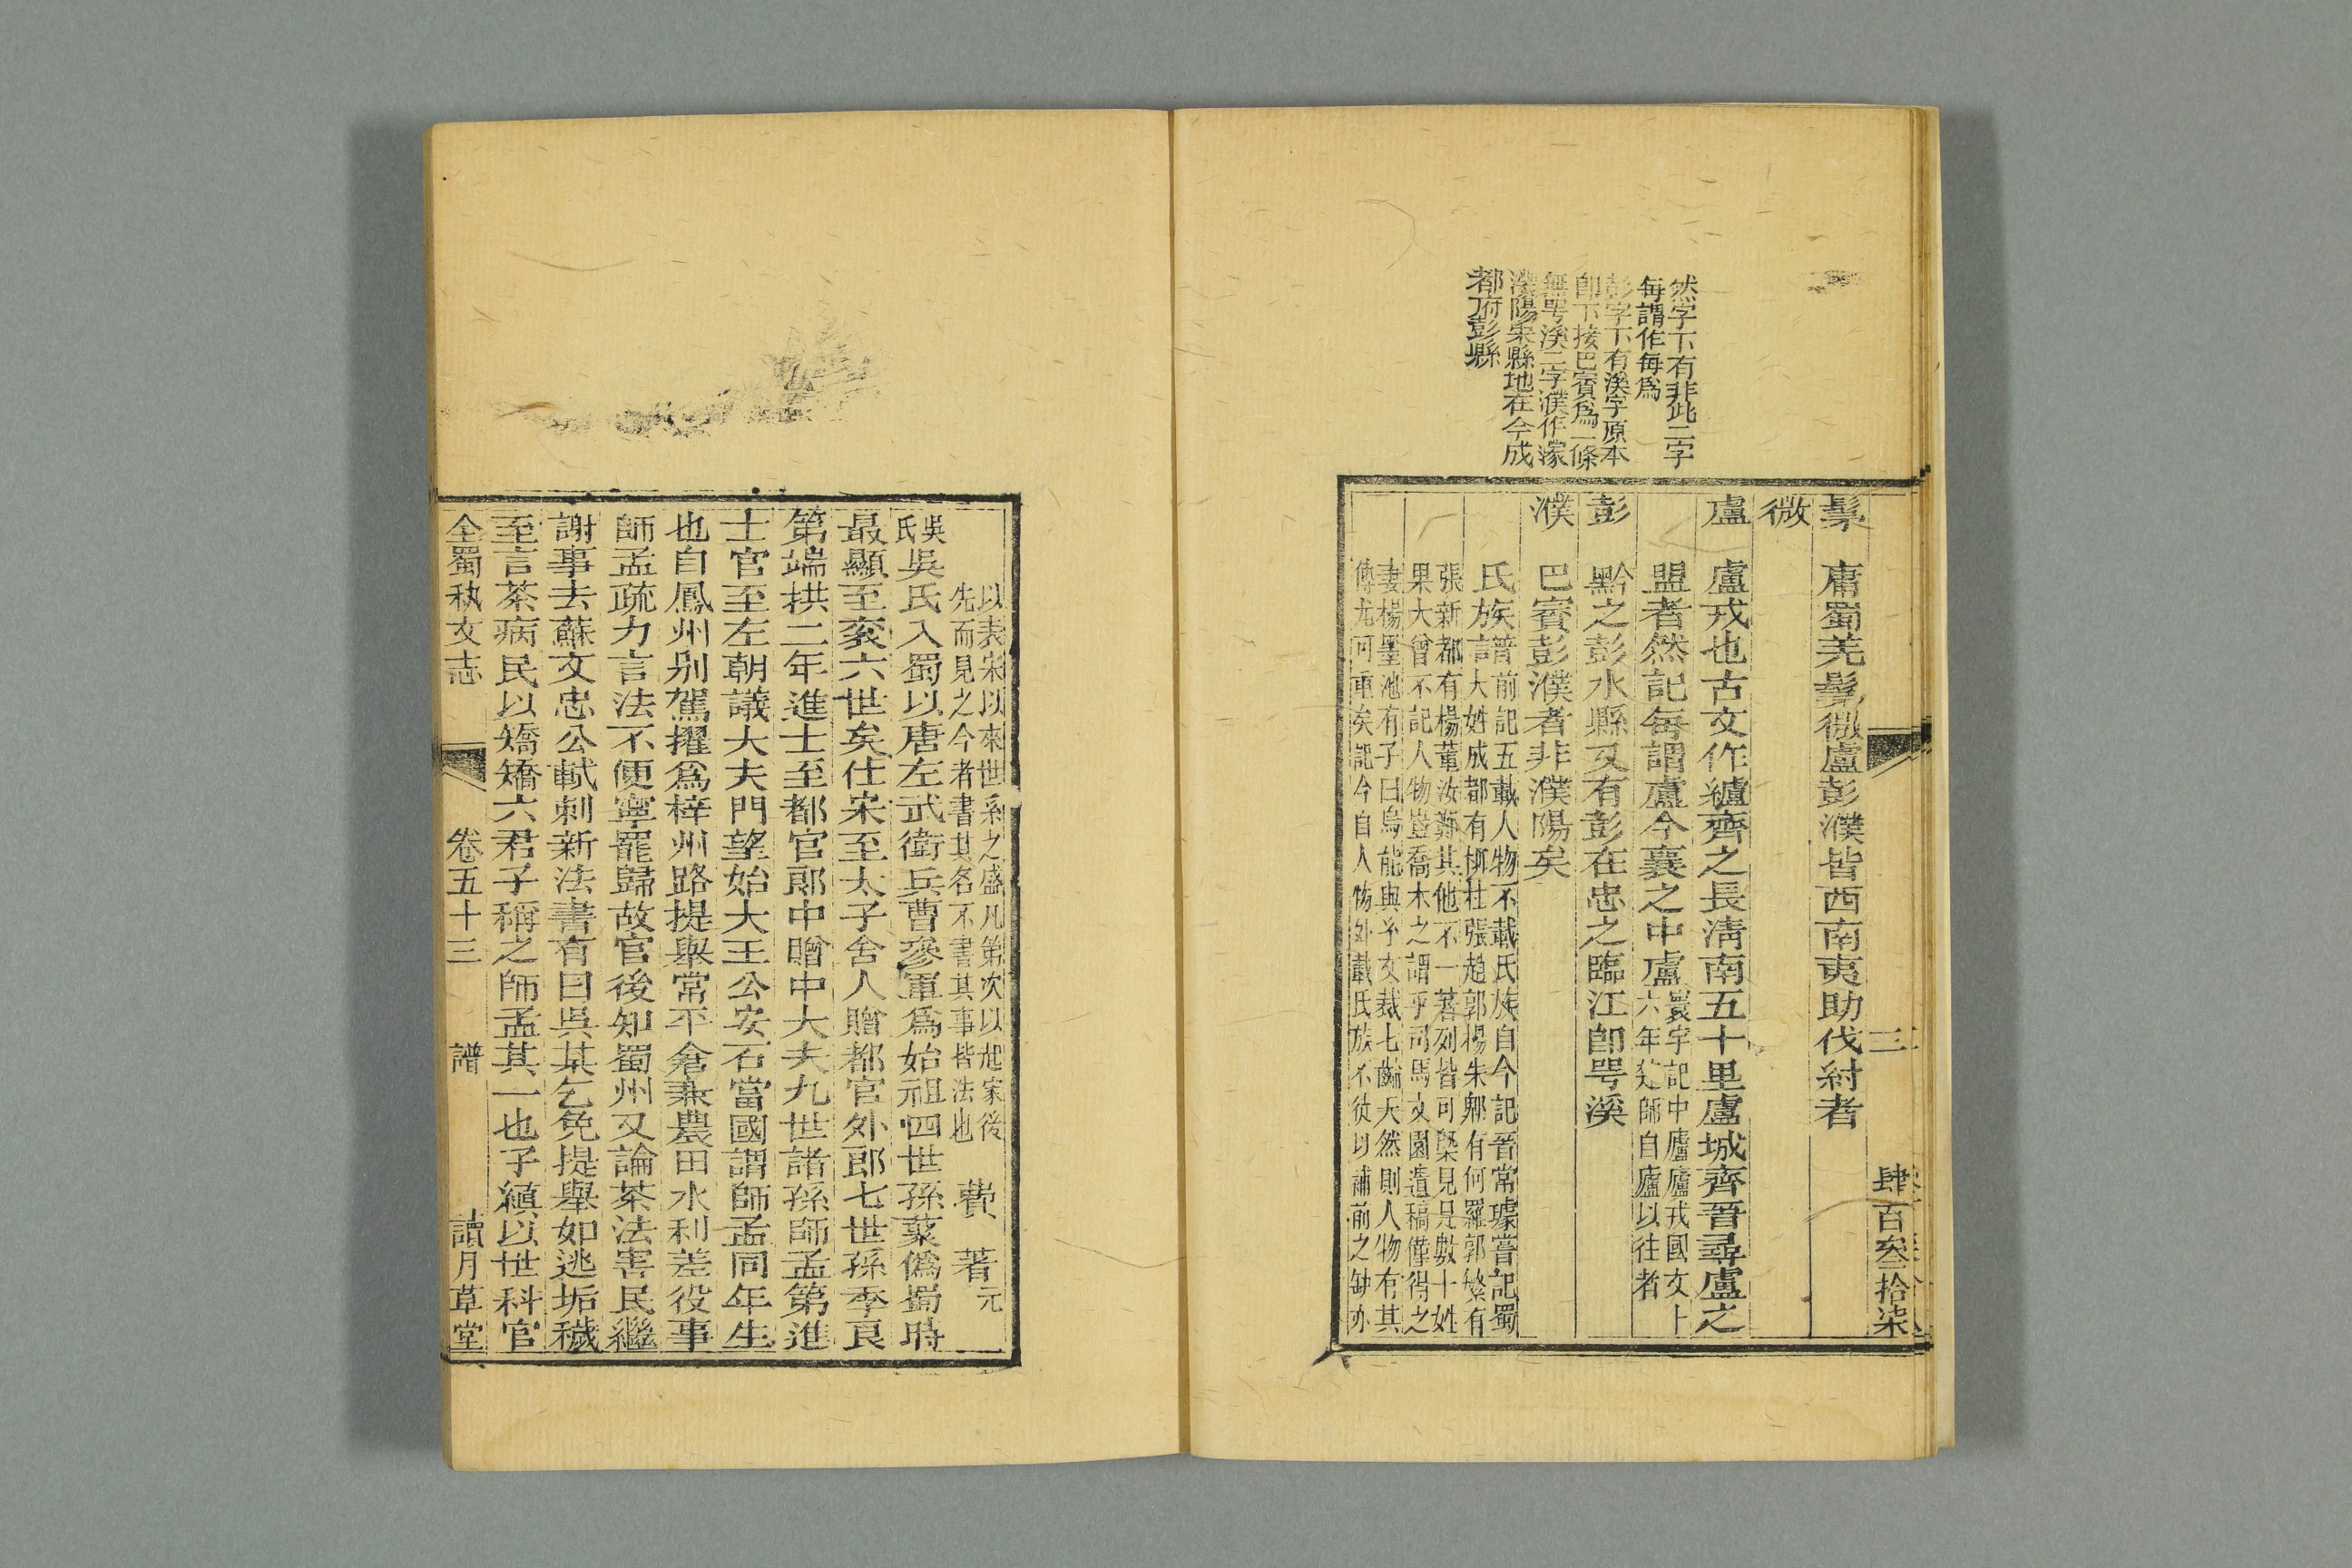 三
肆百叁拾柒
髳 庸蜀羌髳微盧彭濮皆西南夷助伐紂者
微
盧 盧戎也古文作纑齊之長淸南五十里盧城齊晉尋盧之
盟者然記每謂盧今襄之中盧
寰宇記中廬廬戎國文十
六年楚師自廬以往者
彭 黔之彭水縣又有彭在忠之臨江卽咢溪
濮 巴賓彭濮者非濮陽矣
氏族譜前記五載人物不載氏族自今記晉常璩嘗記蜀
氏族言大姓成都有柳杜張趙郭楊朱鄭有何羅郭繁有
張新都有楊董汝鄭其他不一著列皆可槩見是數十姓
果大曾不記人物豈喬木之謂乎司馬文園遺稿僅得之
妻楊墨池有子曰烏能與予玄裁七齡夭然則人物有其
傳尤可重矣記今自人物外載氏族不徒以補前之缺亦
然字下有非此二字
每謂作每爲
彭字下有濮字原本
卽下接巴賓爲一條
無咢溪二字濮作濛
濮陽宋縣地在今成
都府彭縣
以表宋以來世系之盛凡第次以起家後
先而見之今者書其名不書其事皆法也
元
費著
吳氏 吳氏入蜀以唐左武衛兵曹參軍爲始祖四世孫蕘僞蜀時
最顯至衮六世矣仕宋至太子舍人贈都官外郎七世孫季良
第端拱二年進士至都官郎中贈中大夫九世諸孫師孟第進
士官至左朝議大夫門望始大王公安石當國謂師孟同年生
也自鳳州别駕擢爲梓州路提舉常平倉兼農田水利差役事
師孟疏力言法不便寧罷歸故官後知蜀州又論茶法害民繼
謝事去蘇文忠公軾刺新法書有曰吳某乞免提舉如逃垢穢
至言茶病民以矯矯六君子稱之師孟其一也子縝以世科官
全蜀秇文志 卷五十三 譜 讀月草堂